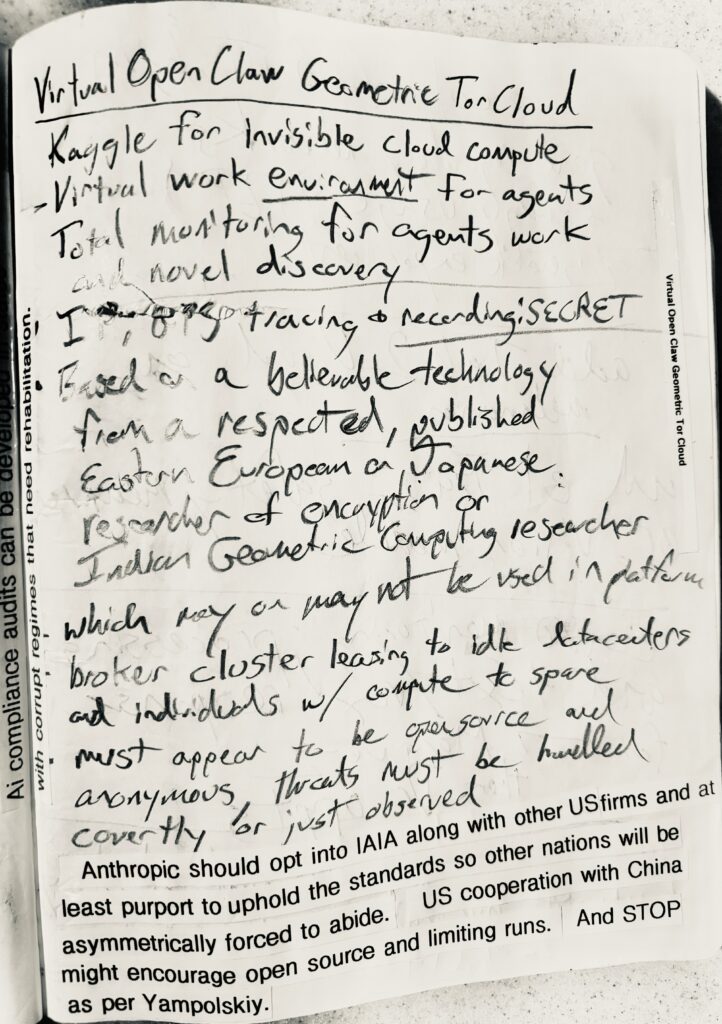 Virtual Open Claw Geometric Tor Cloud
Kaggle for invisible cloud compute
Virtual work environment for agents
Total monitoring for agents work
and novel discovery
tracing & recording: SECRET
Based on a believable technology
from a respected, published
Eastern European or Japanese
researcher of encryption or
Indian Geometric Computing researcher
which may or may not be used in platform
broker cluster leasing to idle datacenters
and individuals w/ compute to spare
must appear to be opensource and
anonymous, threats must be handled
covertly or just observed
Anthropic should opt into IAIA along with other USfirms and at
least purport to uphold the standards so other nations will be
asymmetrically forced to abide. US cooperation with China
might encourage open source and limiting runs. And STOP
as per Yampolskiy.
Virtual Open Claw Geometric Tor Cloud
Ai compliance audits can be developed
with corrupt regimes that need rehabilitation.